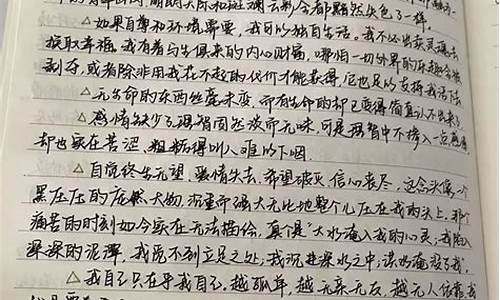 晴朗天际和斑斓云彩全都黯然失色了一样。
△如果自尊和环境需要,我可以独自生活。我不必出卖灵魂去
换取幸福。我有着与生俱来的内心财富,哪怕一切外界的乐趣会被
剥夺,或者除非用我付不起的代价才能获得,它也足以支持我活下去
△无生命的东西丝毫未变,而有生命的却已变得简直认不出来了
△感情缺少了理智固然淡而无味,可是理智中不掺入一点感情
却也实在苦涩、粗糙得叫人难以下咽。
△自觉终生无望,爱情失去,希望破灭,信心丧尽,这念头像一个
黑压压的庞然大物,沉重而强大无比地整个儿压在我的头上,那个
痛苦的时刻如今实在无法描绘,真个是"大水淹入我的心灵,我陷入
深深的泥潭,我觉不到立足之处;我沉进深水之中;洪水淹没了我。
△我自己只在乎我自己,越孤单,越无亲无友,越无人依靠,我